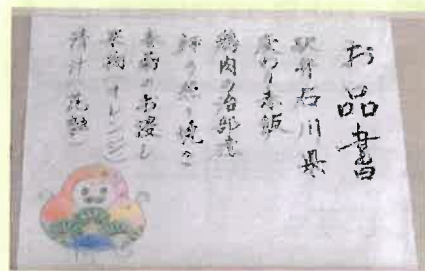 お品書
駅弁石川県
変わり赤飯
鶏肉の治部煮
鰤の照り焼き
春菊のお浸し
果物(オレンジ)
清汁(花麩)